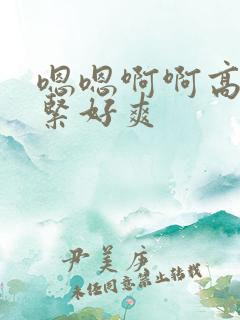 嗯嗯啊啊高
紧好爽
尹美庄
未经同意禁止转载